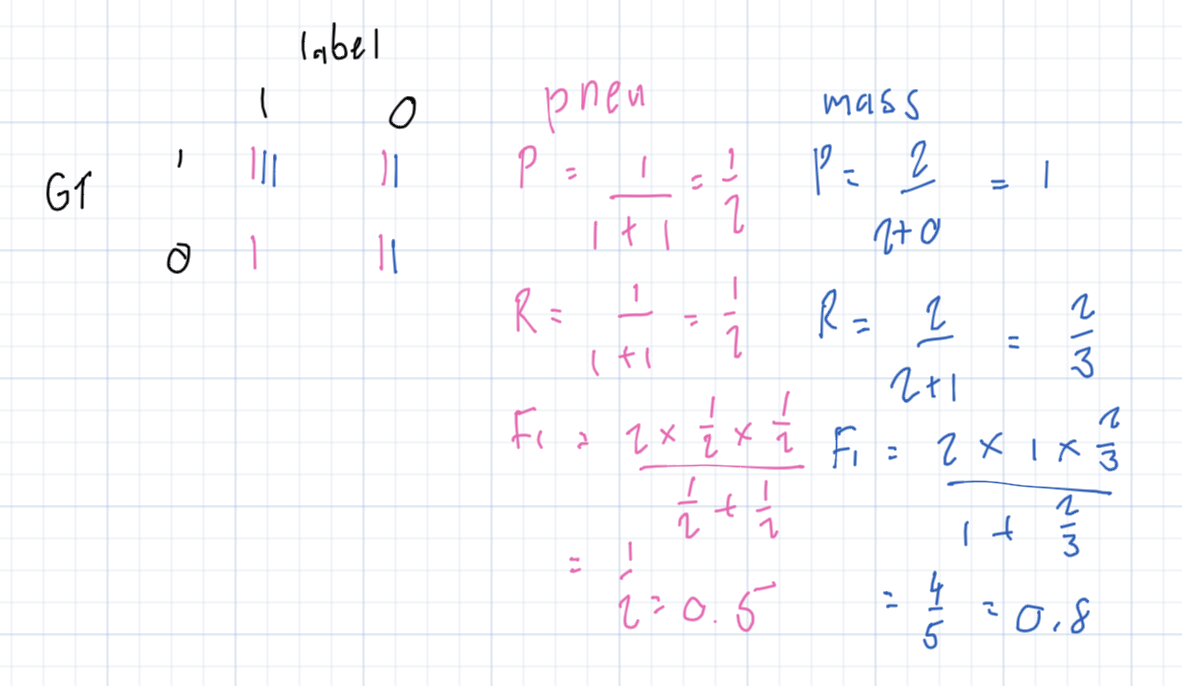 label
1 0
GT 1 ||| ||
0 | ||
pneu
P = 1/(1 + 1) = 1/2
R = 1/(1 + 1) = 1/2
F1 = (2 × 1/2 × 1/2)/(1/2 + 1/2)
= 1/2 = 0.5
mass
P = 2/(2+0) = 1
R = 2/(2+1) = 2/3
F1 = (2 × 1 × 2/3)/(1 + 2/3)
= 4/5 = 0.8